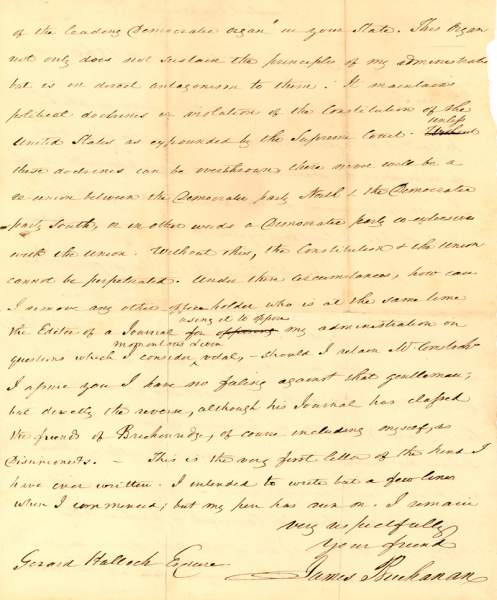 of the leading Democratic organ" in your State. This Organ
not only does not sustain the principles of my administration
but is in direct antagonism to them. It maintains
political doctrines in violation of the Constitution of the
United States as expounded by the Supreme Court. unless
these doctrines can be overthrown there never will be a
re-union between the Democratic party North & the Democratic
party South, or in other words a Democratic party co-extensive
with the Union. Without this, the Constitution & the Union
cannot be perpetuated. Under these circumstances, how can
I remove any other office holder who is at the same time
using it to oppose
the Editor of a Journal for opposing my administration on
momentous & even
questions which I consider vital, - should I retain Mr Comstock
I assure you I have no feeling against that gentleman;
but directly the reverse, although his Journal has classed
the friends of Breckenridge, of course including myself, as
Disunionists. - This is the very first letter of the kind I
have ever written. I intended to write but a few lines
when I commenced; but my pen has run on. I remain
very respectfully
Your friend
Gerard Hallock Esquire. James Buchanan